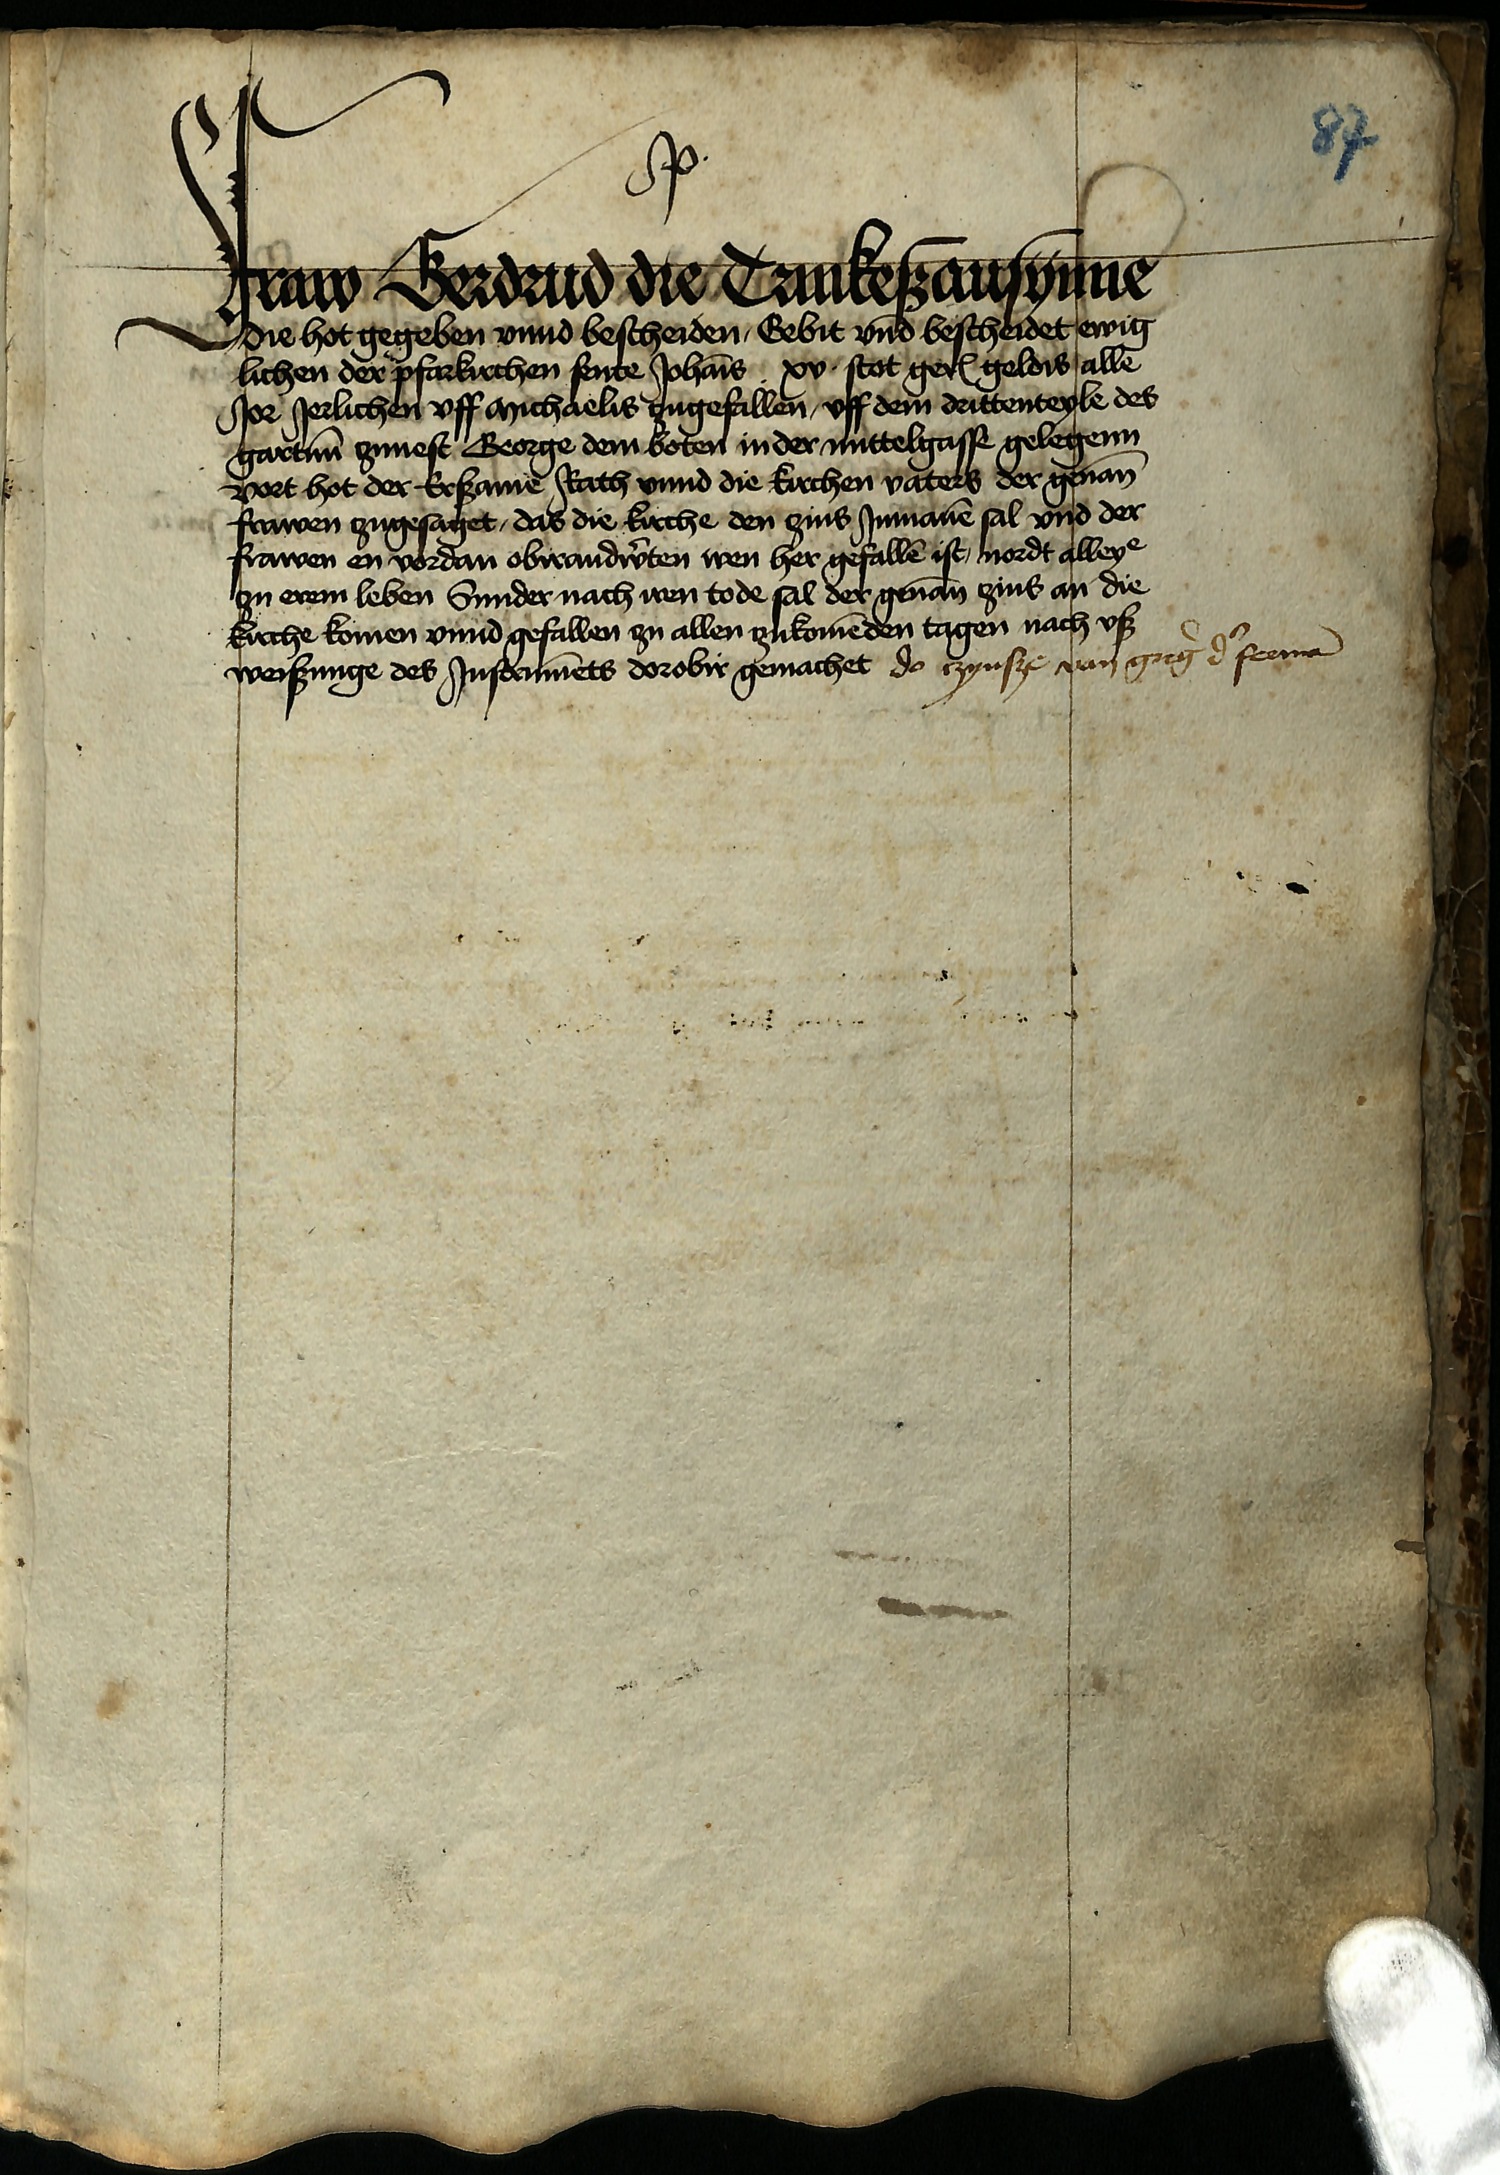 87
Jp.
Fraw Gerdrud die Trankeßausynne
die hot gegeben vnnd bescheiden / Gebit vnd bescheidet ewig
lichen der pfarkirchen sente Johānis . xv . scot gerl geldis allē
Jor Jerlichen vff Michaelis zugefallen / vff dem drittenteyle des
garttnn zunest George dem boten in der mittelgasse gelegenn
Vort hot der Erßame Rath vnnd die kirchen vaters der genan̄
frawen zugesaget / das die kirche den zins Jnmanē sal vnd der
frawen en vordan obirandw̄ten wen her gefallē ist / nordt alleye
zu erem leben Sunder nach iren tode sal der genan̄ zins an die
kirche komen vnnd gefallen zu allen zukomēden tagen nach vß
weißunge des Jnstrumēts dorobir gemachet do czynsze van